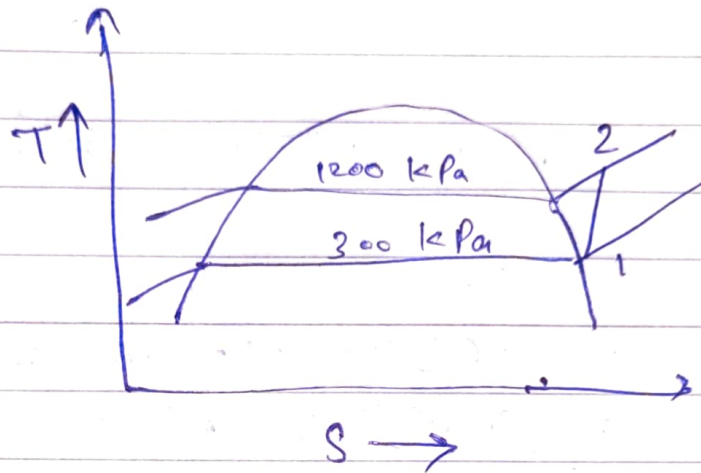 T
2
1200 kPa
300 kPa
1
S